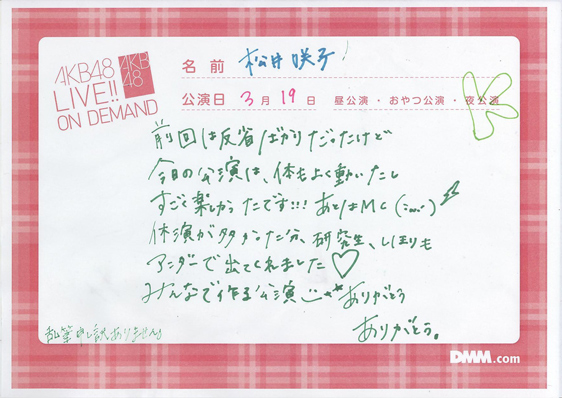 AKB48
LIVE!!
ON DEMAND
AKB
48
名前 松井咲子!
公演日 3月19日 昼公演・おやつ公演・夜公演
前回は反省ばかりだったけど
今日の公演は、体もよく動いたし
すごく楽しかったです!!! あとはMC
休演が多かった分、研究生、しほりも
アンダーで出てくれました♡
みんなで作る公演 ありがとう
ありがとう。
乱筆申し訳ありません
DMM.com